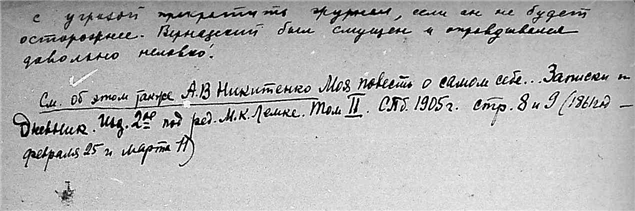 с угрозой прекратить журнал, если он не будет
осторожнее. Вернадский был смущен и оправдывался
довольно неловко.
См. об этом также А.В Никитенко Моя повесть о самом себе... Записки и
Дневник. Изд. 2ое под ред. М.К. Лемке. Том II. СПб. 1905 г. стр. 8 и 9 (1861 год –
февраля 25 и марта 11)